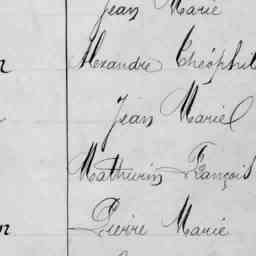 Jean Marie
Alexandre Théophil
Jean Marie
Mathurin François
Pierre Marie